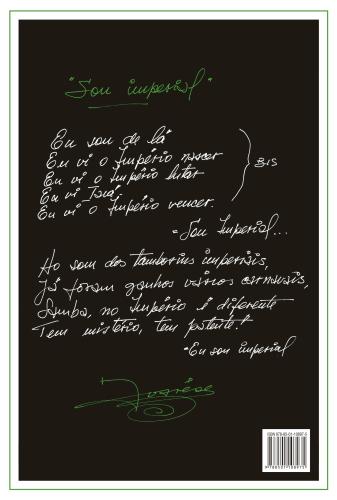 "Sou imperial"
Eu sou de lá
Eu vi o Império nascer
Eu vi o Império lutar
Eu vi
Eu vi o Império vencer.
BIS
"Sou Imperial...
Ao som dos tamborins imperiais,
Já foram ganhos vários carnavais,
Samba, no Império é diferente
Tem mistério, tem patente!
"Eu sou imperial
ISBN 978-85-01-10897-5